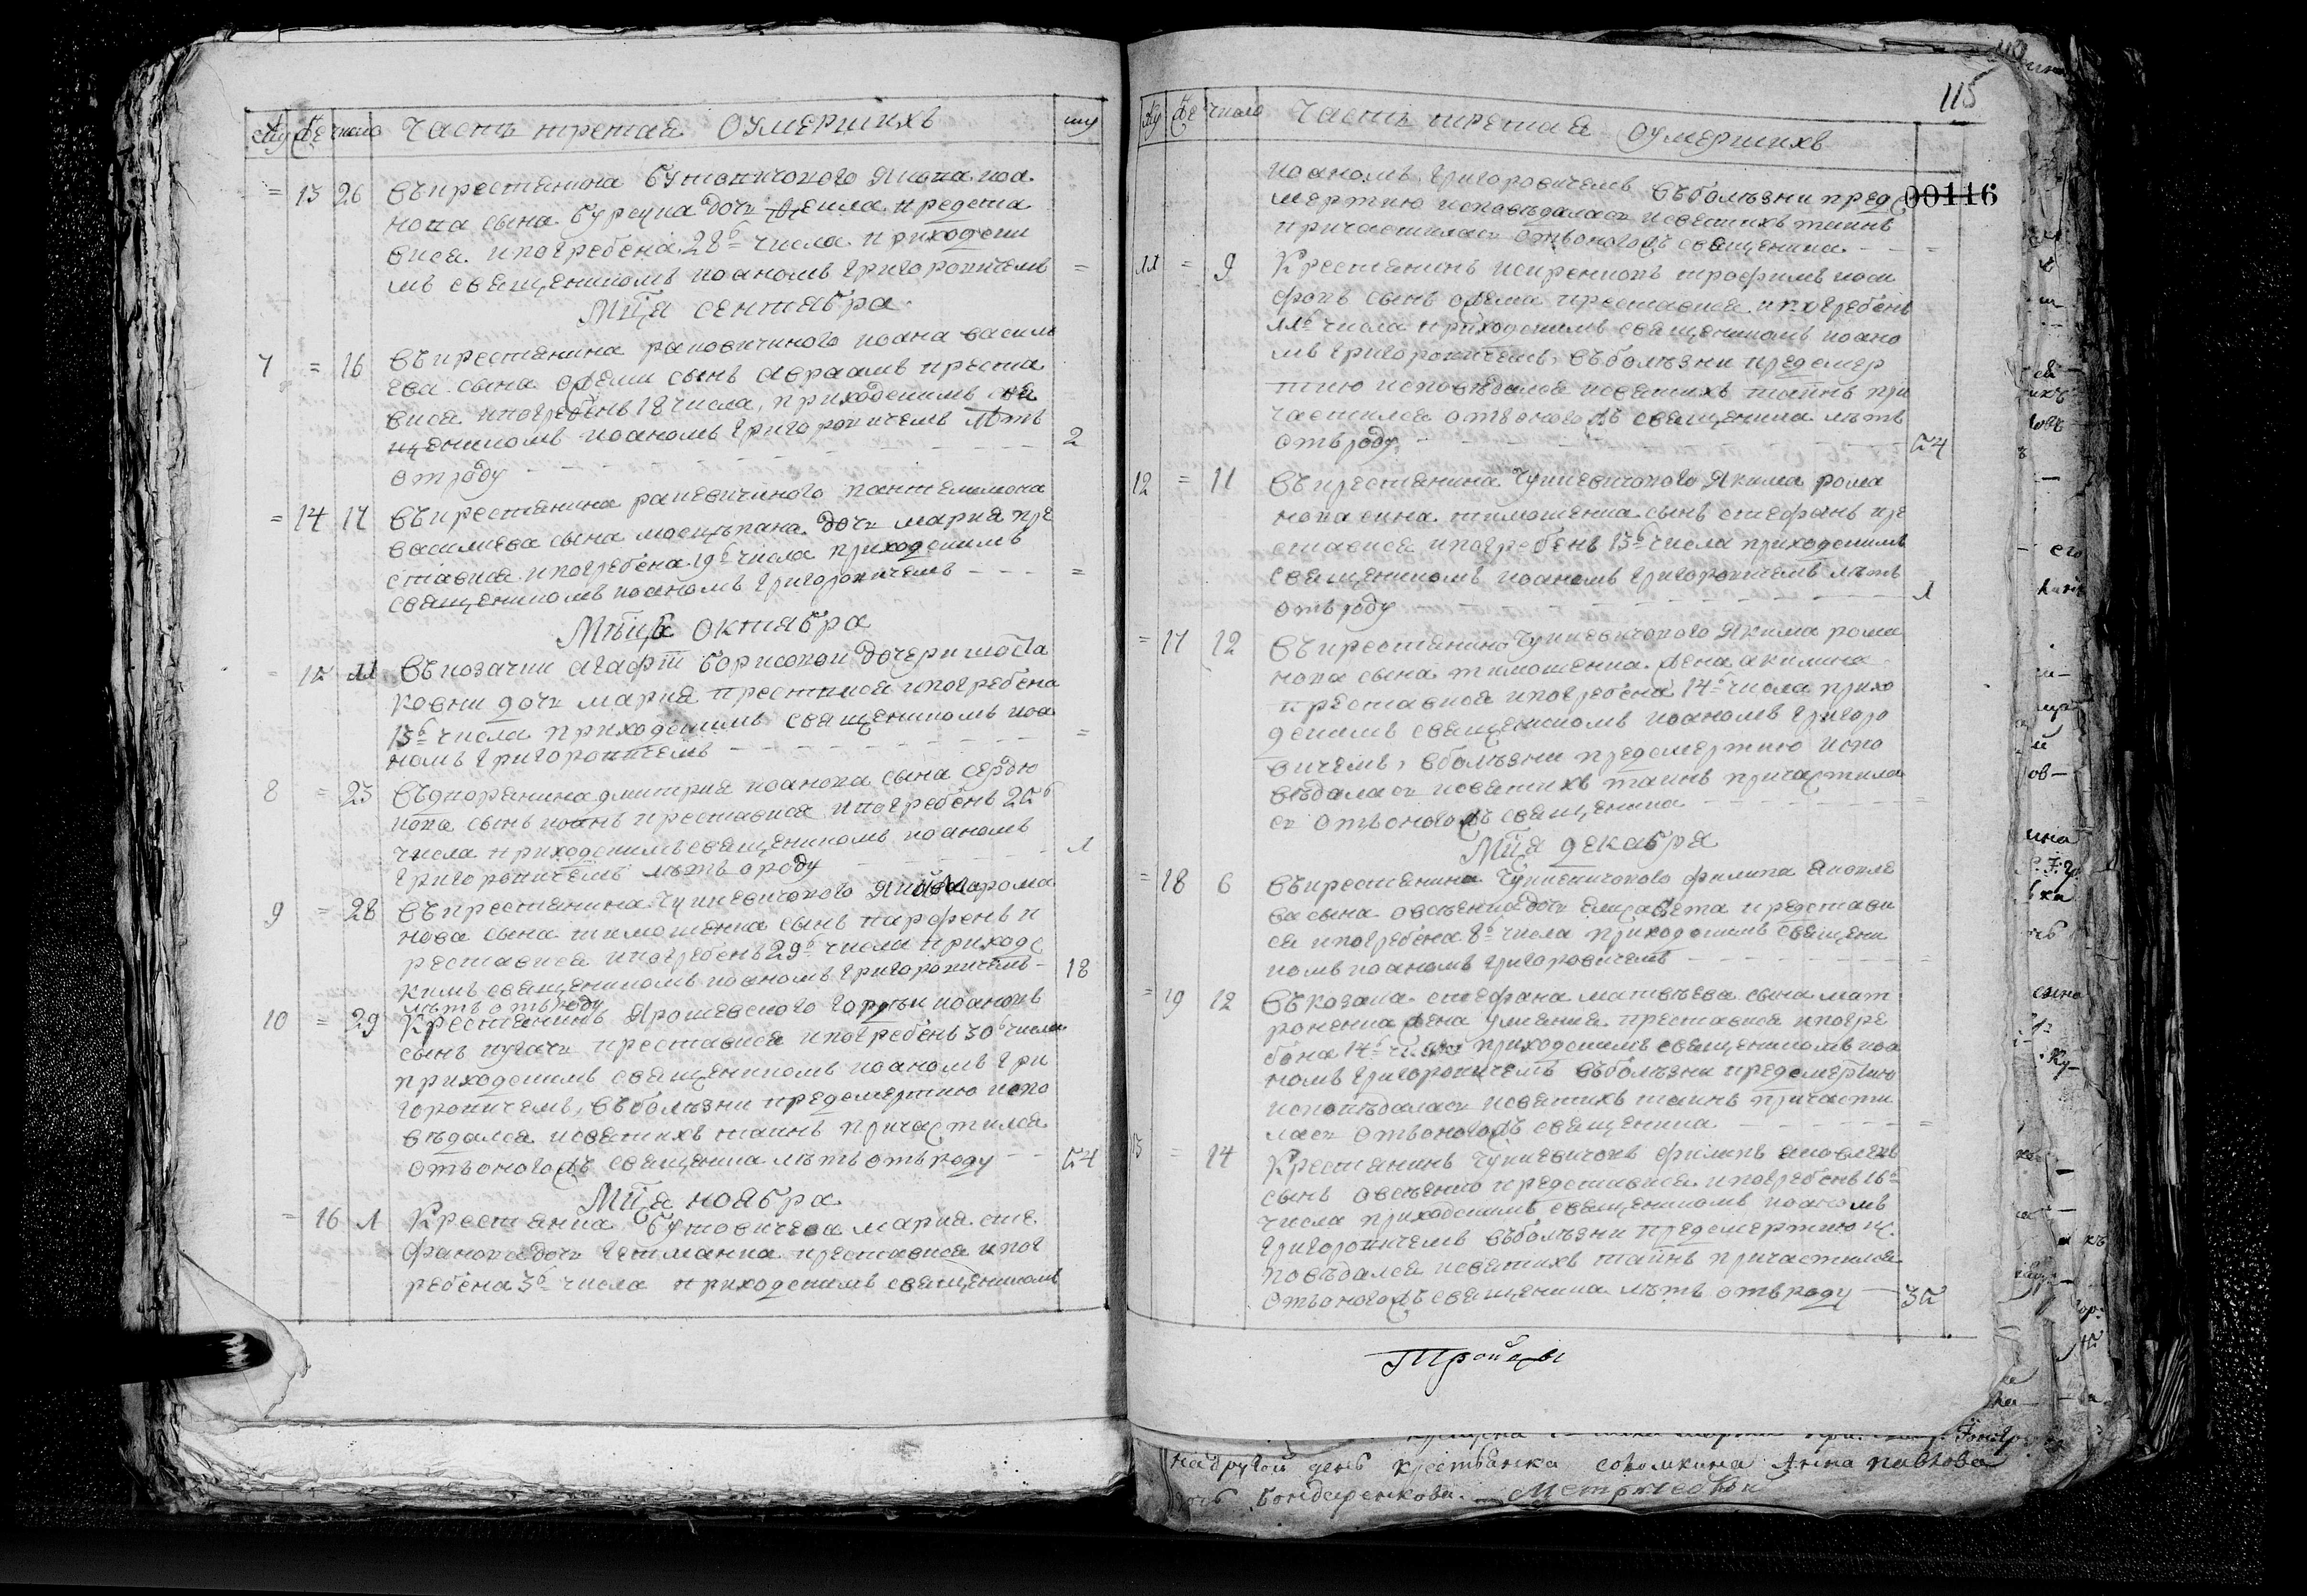 Му Же число Часть третая О умершихъ
= 13 26 Въ крестянина Бутовичового Якова Иоа
нова сына Бурсука дочь преста
вися и погребена 28го числа приходски
мъ священникомъ Иоаномъ Григоровичемъ =
Мца сентября
7 = 16 Въ крестянина раковичиного Иоана василь
ева сына сынъ Авраамъ преста
вися и погребенъ 18 числа, приходскимъ свя
щенникомъ Иоаномъ Григоровичемъ лѣтъ 2
отроду
= 14 17 Въ крестянина Пантелимона
василиева сына дочь Мария пре
ставися и погребена 19го числа приходскимъ
священникомъ Иоаномъ Григоровичемъ =
Мца октября
= 15 11 Въ козачки Агафіи Борисовой дочери
ковни дочь Мария преставися и погребена
13го числа приходскимъ священникомъ Иоа
номъ Григоровичемъ =
8 = 23 Въ дворянина Дмитрия Иоанова сына Сердю
кова сынъ Иоанъ преставися и погребенъ 25го
числа приходскимъ священникомъ Иоаномъ 1
Григоровичемъ лѣтъ ороду
9 = 28 Въ крестянина Чуйкевичового рома
нова сына тимошенка сынъ парфенъ п
реставися и погребенъ 29го числа приходс
кимъ священникомъ Иоаномъ Григоровичемъ 18
лѣтъ отъ роду
10 = 29 Крестянинъ Ярошевского Гордѣй Иоановъ
сынъ пугачъ преставися и погребенъ 30го числа
приходскимъ священникомъ Иоаномъ Гри
горовичемъ, въ болѣзни предсмертию испо
вѣдался и святихъ таинъ причастился
отъ оногожъ священика лѣтъ отъ роду 54
Мца ноября
= 16 1 Крестянка Бутовичева Мария сте
фанова дочь Гетманка преставися и пог
ребена 3го числа приходскимъ священикомъ
115
00116
Му Же число Часть третая О умершихъ
Иоаномъ Григоровичемъ въ болѣзни предс
мертию исповѣдалась и святихъ таинъ
причастилась отъ оногожъ священика =
11 = 9 Крестянинъ трофимъ иоси
фовъ сынъ преставися и погребенъ
11го числа приходскимъ священикомъ Иоано
мъ Григоровичемъ, въ болѣзни предсмер
тию исповѣдался и святихъ таинъ при
частился отъ оногожъ священика лѣтъ
отъ роду 54
12 = 11 Въ крестянина Чуйкевичового Якима рома
нова сина тимошенка сынъ стефанъ пре
ставися и погребенъ 13го числа приходскимъ
священикомъ Иоаномъ Григоровичемъ лѣтъ
отъ роду 1
= 17 12 Въ крестянина Чуйкевичового Якима рома
нова сына тимошенка жена акилина
преставися и погребена 14го числа прихо
дскимъ священикомъ Иоаномъ Григоро
вичемъ, в болѣзни предсмертию испо
вѣдалась и святихъ таинъ причастила
сь отъ оногожъ священика =
Мца декабря
= 18 6 Въ крестянина Чуйкевичового филипа яковле
ва сына овсѣенка дочь елисавета представи
ся и погребена 8го числа приходскимъ священи
комъ Иоаномъ Григоровичемъ =
= 19 12 Въ козака стефана матвѣева сына мат
роненка жена улияния преставися и погре
бена 14го числа приходскимъ священикомъ Иоа
номъ Григоровичемъ въ болѣзни предсмертию
исповѣдалась и святихъ таинъ причасти
лась отъ оногожъ священика =
13 = 14 Крестянинъ Чуйкевичовъ филипъ яковлевъ
сынъ овсѣенко представися и погребенъ 16го
числа приходскимъ священикомъ Иоаномъ
Григоровичемъ въ болѣзни предсмертию ис
повѣдался и святихъ таинъ причастился
отъ оногожъ священика лѣтъ отъ роду 35
Тройцы
на другой день крестьянка Анна Павлова
дочь Бондаренкова